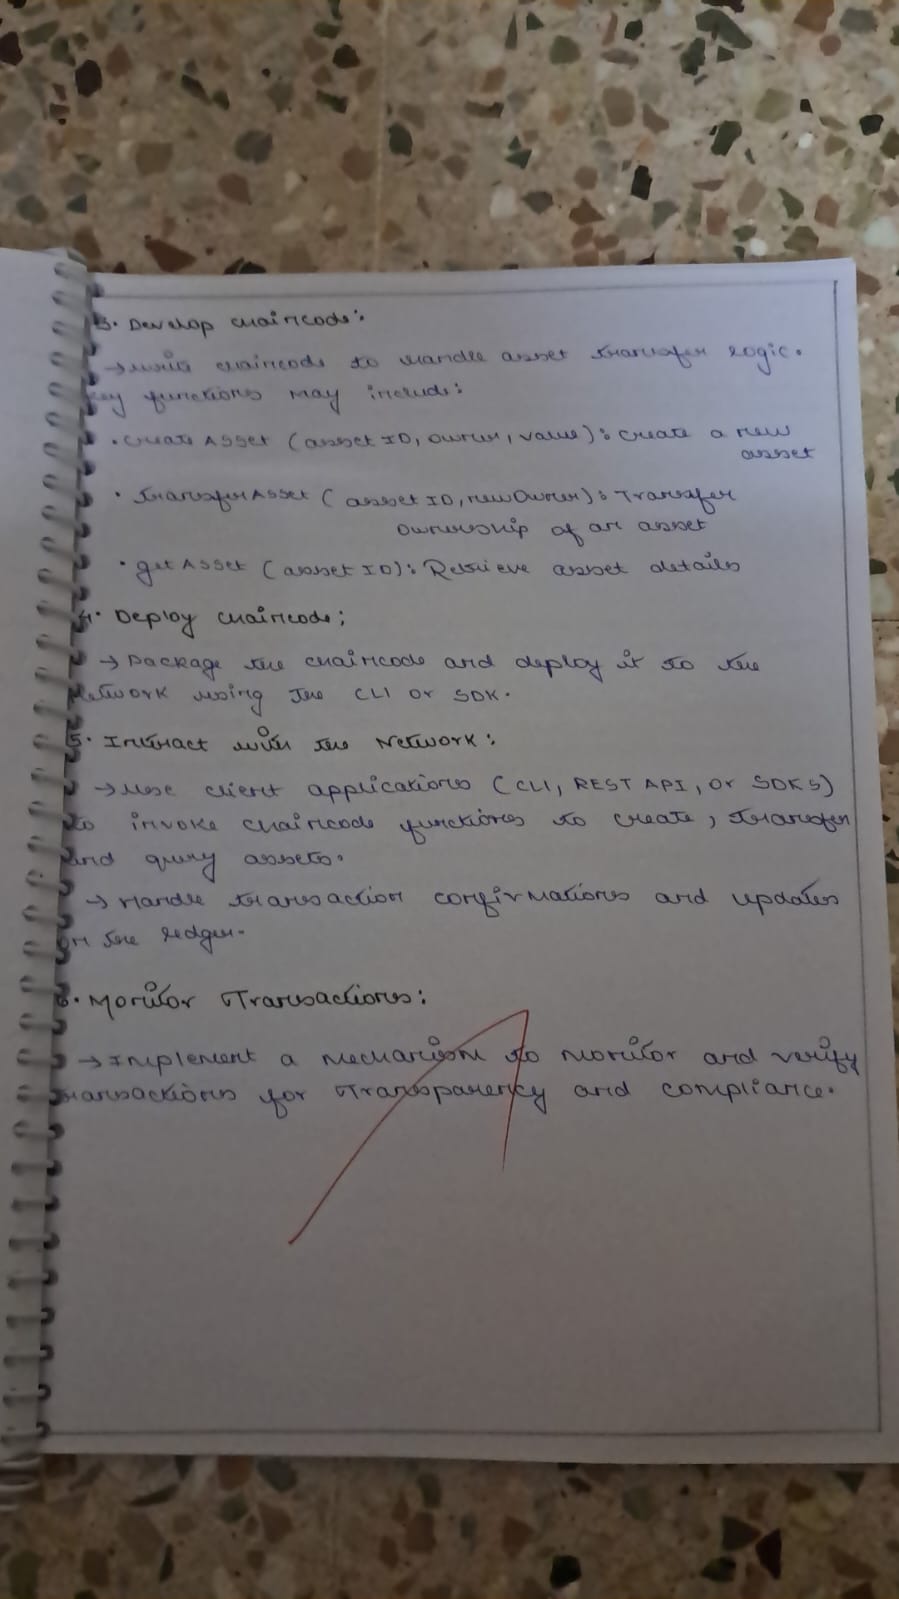 3. Develop chaincode:
→ write chaincode to handle asset transfer logic.
key functions may include:
• Create Asset (asset ID, owner, value): create a new
asset
• Transfer Asset (asset ID, new Owner): Transfer
Ownership of an asset
• get Asset (asset ID): Retrieve asset details
4. Deploy chaincode:
→ Package the chaincode and deploy it to the
Network using the CLI or SDK.
5. Interact with the Network:
→ Use client applications (CLI, REST API, or SDKS)
to invoke chaincode functions to create, transfer
and query assets.
→ Handle transaction confirmations and updates
on the ledger.
6. Monitor Transactions:
→ Implement a mechanism to monitor and verify
transactions for transparency and compliance.